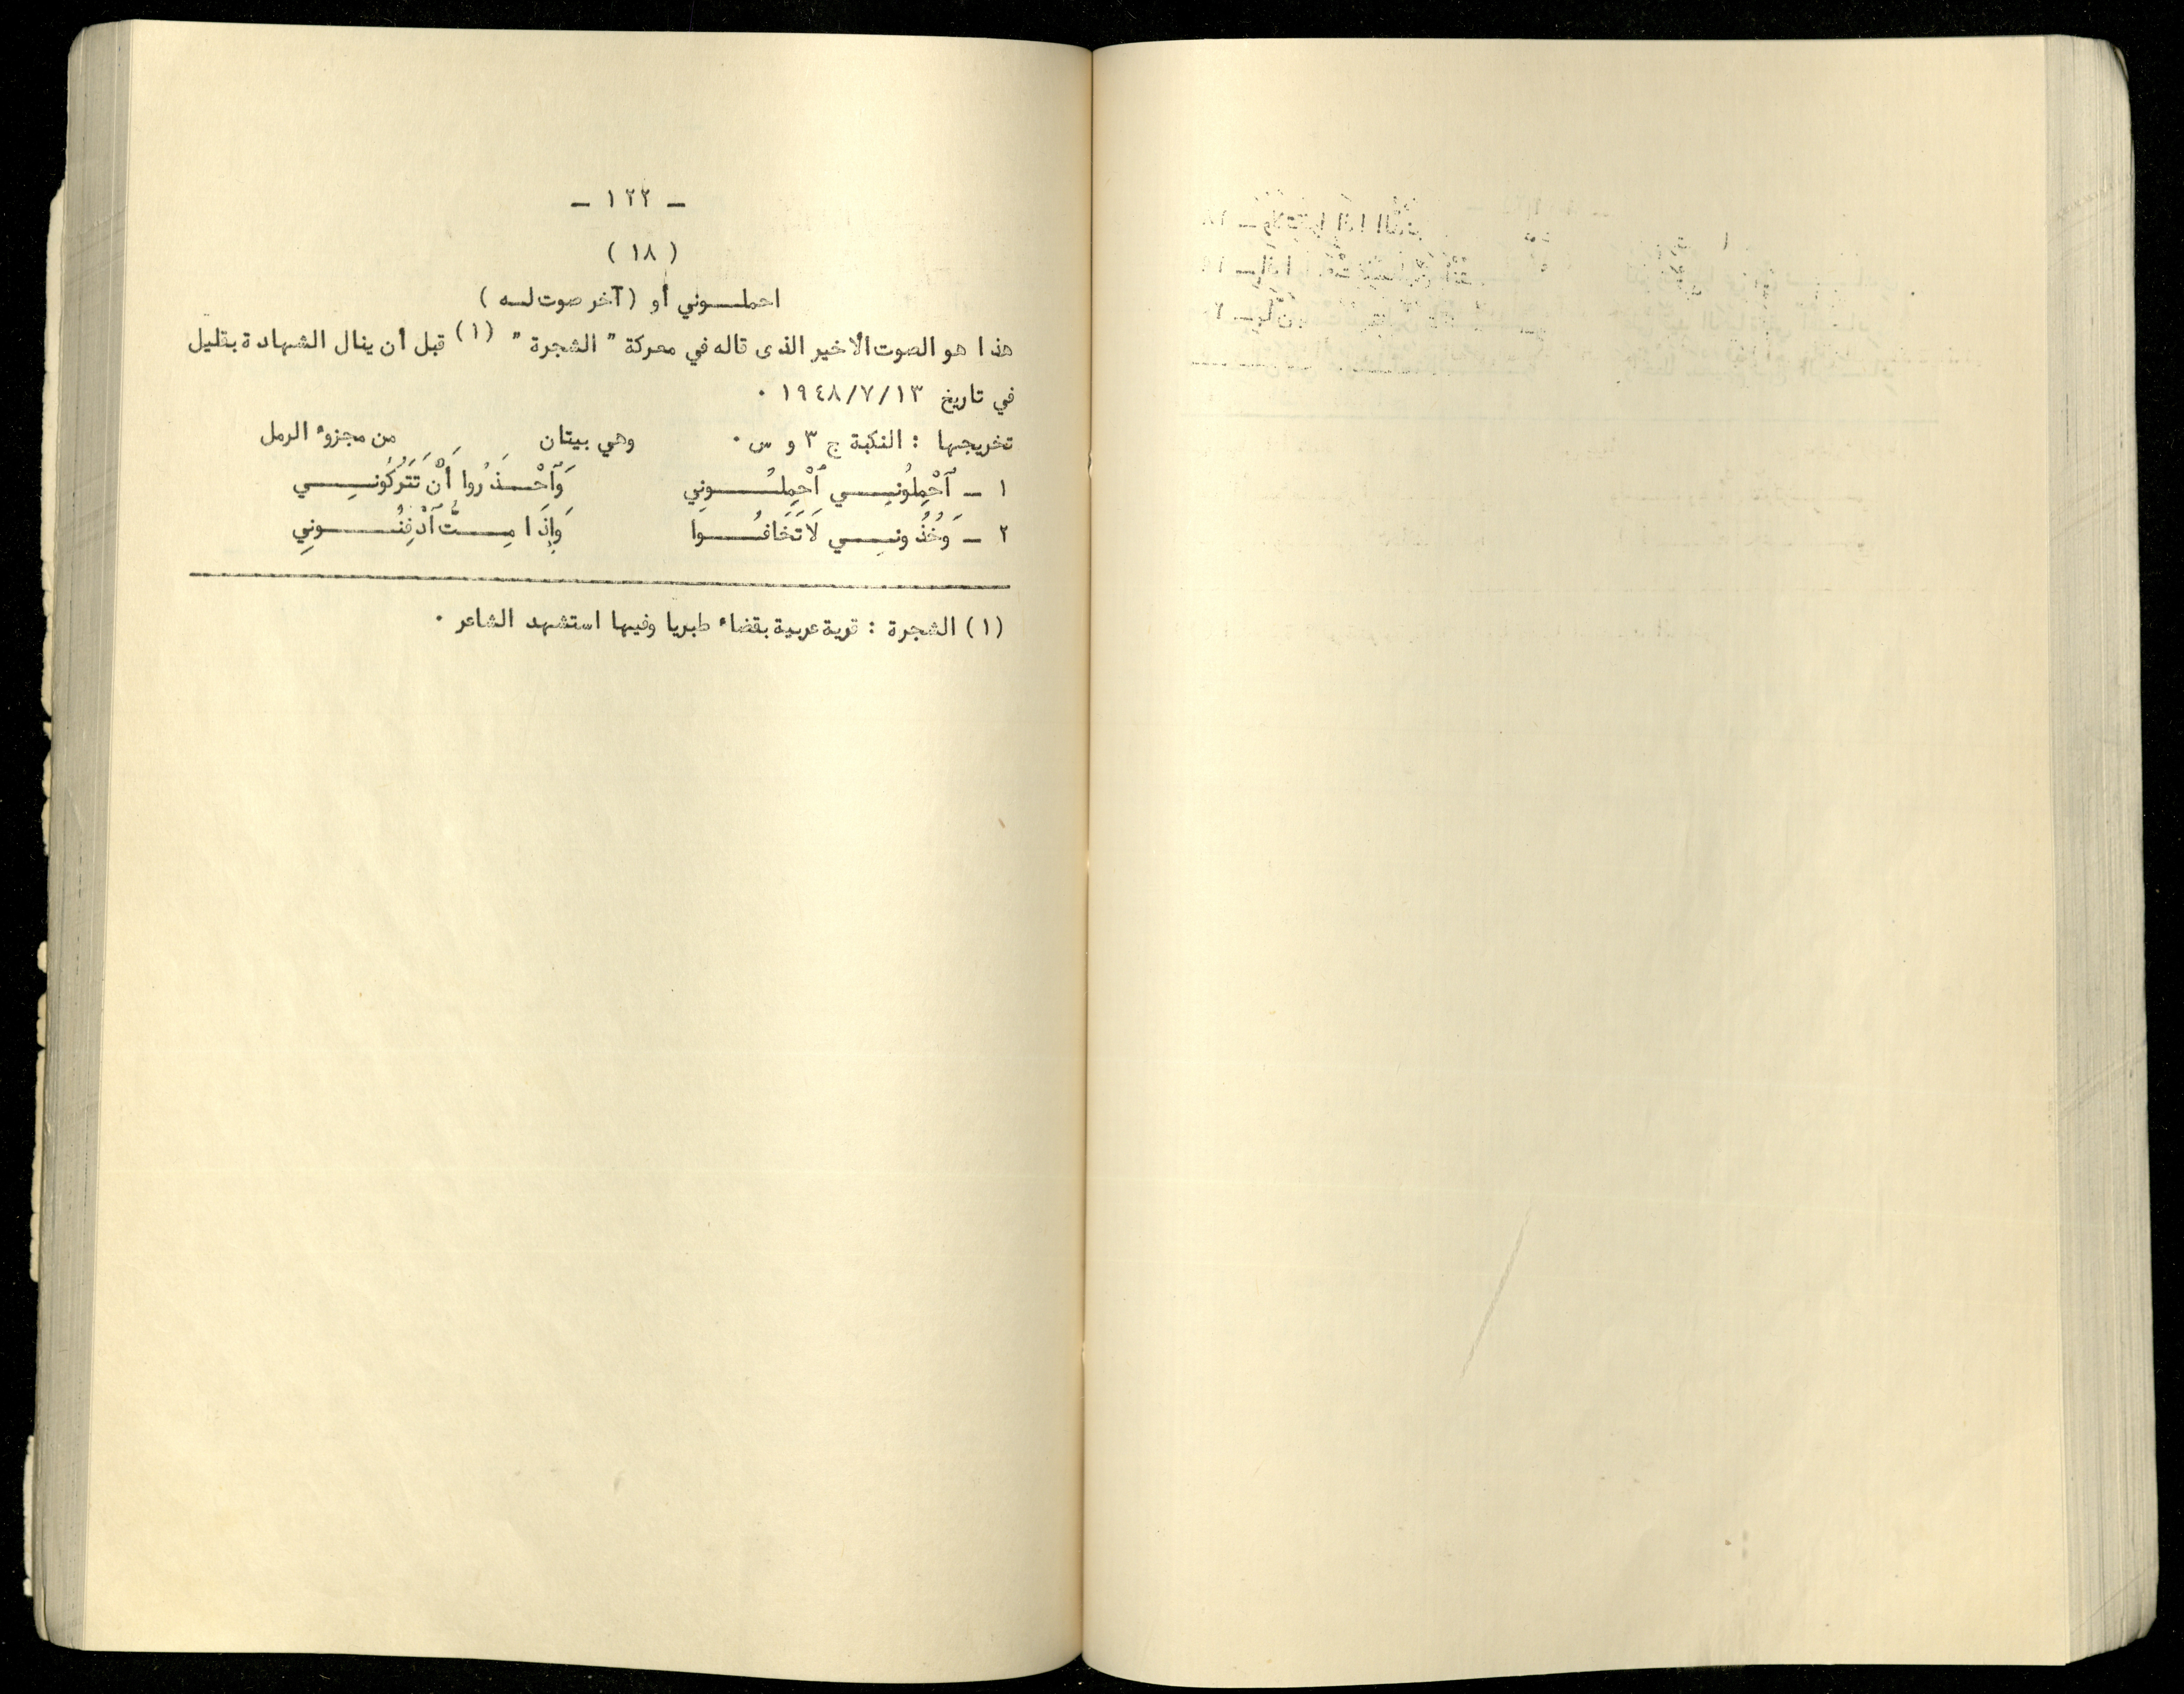 – ١٣٢ –
( ١٨ )
احملـــوني أو ( آخر صوت لـه )
هذا هو الصوت الأخير الذى قاله في معركة " الشجرة " (١) قبل أن ينال الشهادة بقليل
في تاريخ ١٩٤٨/٧/١٣ ٠
تخريجها : النكبة ج ٣ و س ٠ وهي بيتان من مجزوء الرمل
١ – ٱحْمِلُونِـــي ٱحْمِلُـــونِي وَٱحْـــذَرُوا أَنْ تَتْرُكُونِـــي
٢ – وَخُذُونـــي لَا تَخَافُـــوا وَإِذَا مِـــتُّ ٱدْفِنُـــونِي
(١) الشجرة : قرية عربية بقضاء طبريا وفيها استشهد الشاعر ٠